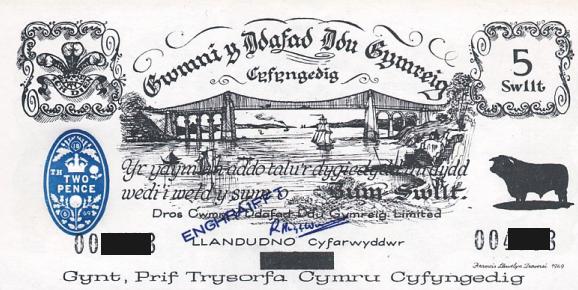 Gwmni y Ddafad Ddu Gymreig
Cyfyngedig
5
Swllt
Yr ydym yn addo talu'r dygiedydd
wedi'i weld y swm o Bum Swllt.
TWO
PENCE
Dros Cwmni y Ddafad Ddu Gymreig Limited
ENGHRAIFFT
00 8
LLANDUDNO Cyfarwyddwr
00 8
Francis Llewelyn 1969
Gynt, Prif Trysorfa Cymru Cyfyngedig